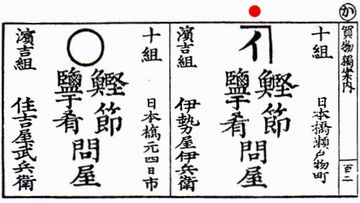 か
買物獨案内
百二
十組
日本橋瀬戸物町
イ
鰹節
鹽干肴
問屋
濱吉組
伊勢屋伊兵衛
十組
日本橋元四日市
鰹節
鹽干肴
問屋
濱吉組
住吉屋武兵衛